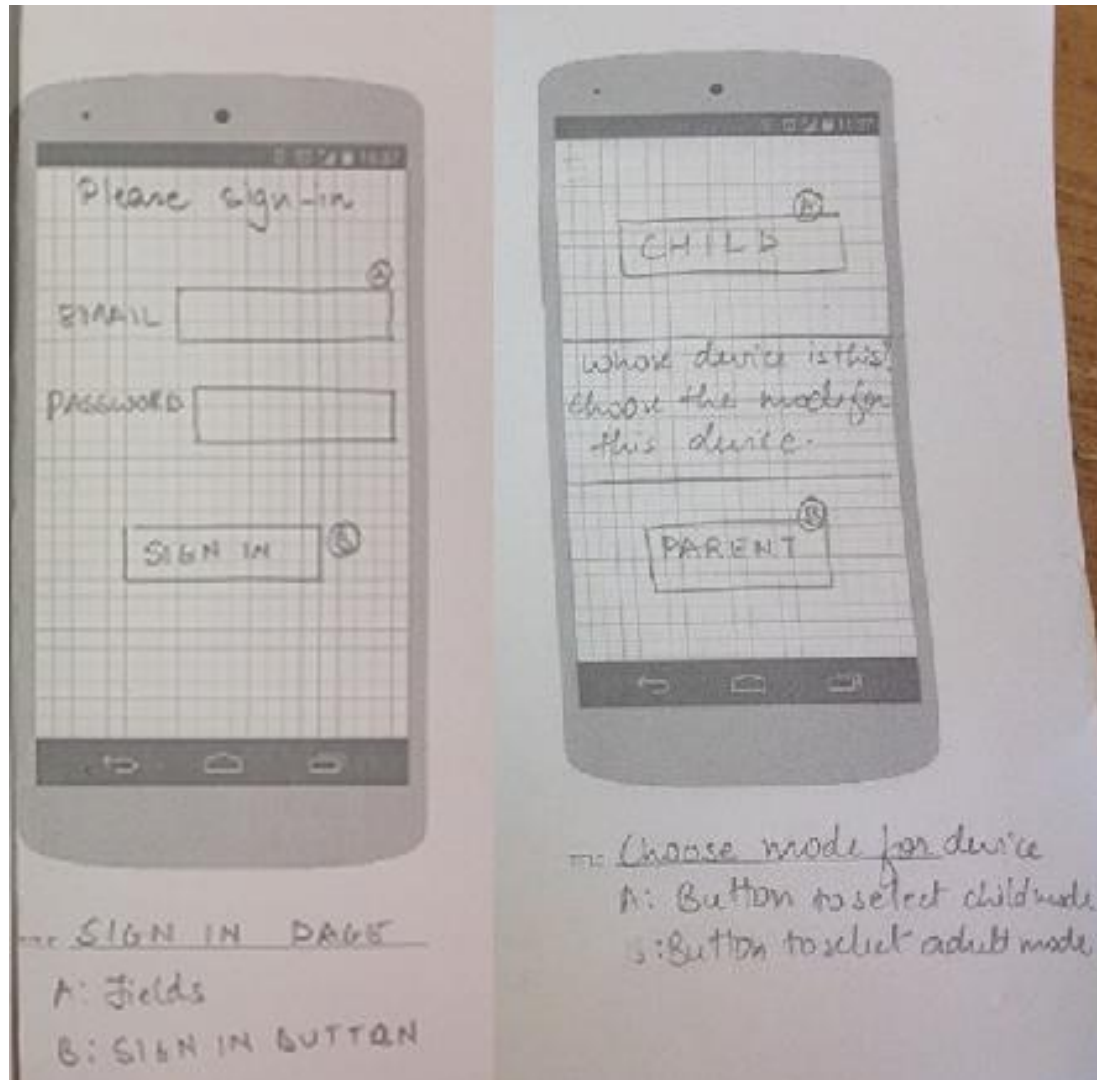 Please sign-in
A
EMAIL
PASSWORD
SIGN IN
B
SIGN IN PAGE
A: Fields
B: SIGN IN BUTTON
A
CHILD
Whose device is this?
Choose the mode for
this device.
B
PARENT
Choose mode for device
A: Button to select child mode
B: Button to select adult mode